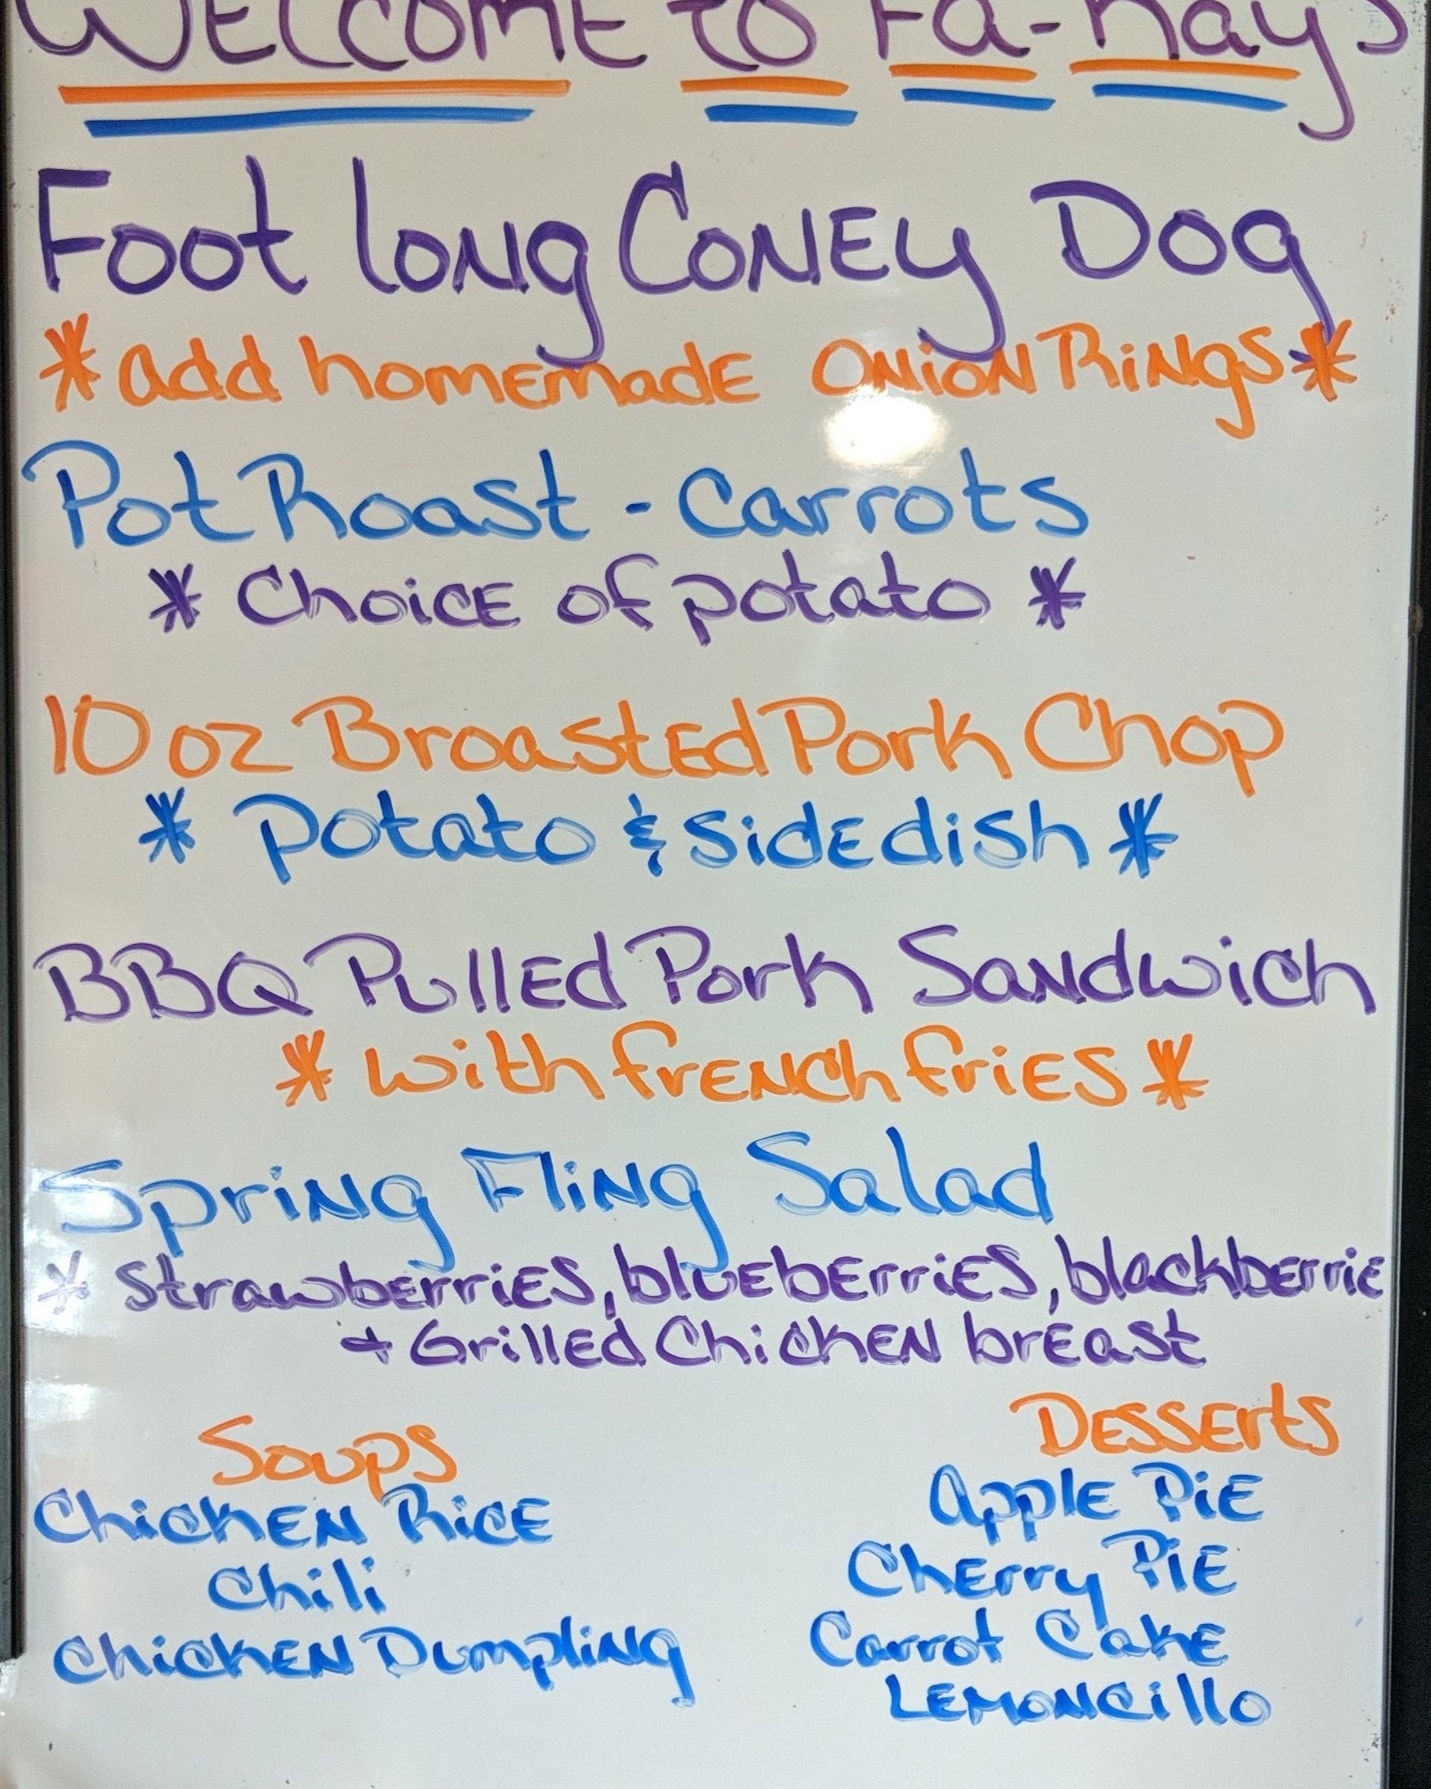 WELCOME to Fa-Kay's
Foot long CONEY Dog
* add homemade ONiON RiNgs *
Pot Roast - Carrots
* ChoicE of potato *
10 oz BroastEd Pork Chop
* Potato & SidEdish *
BBQ PullEd Pork SaNdwich
* with frENch friES *
SpriNg FliNg Salad
* StrawbErriES, bluEbErriES, blackbErriE
+ GrillEd ChickEN brEast
Soups
DESSErts
ChickEN RicE
ApplE PiE
Chili
ChErry PiE
ChickEN DumpliNg
Carrot CakE
LEMONcillo